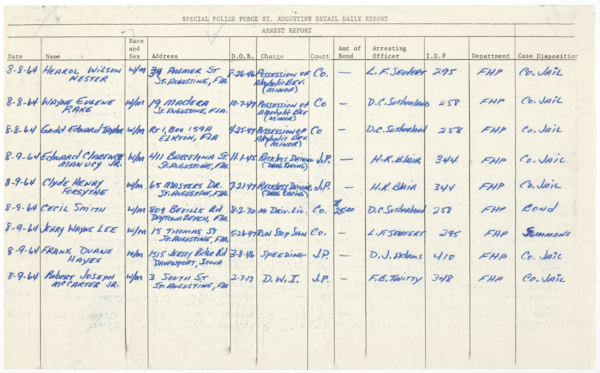 SPECIAL POLICE FORCE ST. AUGUSTINE DETAIL DAILY REPORT
ARREST REPORT
Date Name Race and Sex Address D.O.B. Charge Court Amt of Bond Arresting Officer I.D.# Department Case Disposition
8-8-64 HEAROL WILSON NESTER W/M 39 PALMER ST ST. AUGUSTINE, FLA. 8-26-46 POSSESSION OF Alcoholic Bev. (MINOR) Co. — L.F. SEUFERT 295 FHP Co. JAIL
8-8-64 WAYNE EUGENE W/M 19 MADERA ST. AUGUSTINE, FLA. 10-7-47 POSSESSION OF Alcoholic Bev (MINOR) Co — D.C. Sutherland 258 FHP Co. JAIL
8-8-64 Gadd Edward Taylor W/M Rt 1, Box 159A ELKTON, FLA 4-25-47 POSSESSION OF Alcoholic Bev. (MINOR) Co — D.C. Sutherland 258 FHP Co. JAIL
8-9-64 Edward Clarence MANUCY JR. W/M 411 BARCELONA ST ST. AUGUSTINE, FLA. 11-1-45 RECKLESS DRIVING (DRAG RACING) J.P. — H.R. BLAIR 344 FHP Co. JAIL
8-9-64 Clyde HENRY FORSYTHE W/M 65 MASTERS DR. ST. AUGUSTINE, FLA. 7-22-47 RECKLESS DRIVING (DRAG RACING) J.P. — H.R. BLAIR 344 FHP Co. JAIL
8-9-64 CECIL SMITH W/M 809 BEVILLE RD DAYTONA BEACH, FLA. 8-2-30 NO DRIV. LIC. Co. $25.00 D.C. Sutherland 258 FHP BOND
8-9-64 JERRY WAYNE LEE W/M 15 THOMAS ST ST. AUGUSTINE, FLA. 5-26-47 RUN STOP SIGN Co. — L.F. SEUFERT 295 FHP SUMMONS
8-9-64 FRANK DUANE HAYES W/M 1515 JERSEY RIDGE RD DAVENPORT, IOWA 3-8-46 SPEEDING J.P. — D.J. ADAMS 410 FHP Co. JAIL
8-9-64 Robert JOSEPH McCARTER JR. W/M 3 SOUTH ST ST. AUGUSTINE, FLA 2-3-13 D.W.I. J.P. — F.B. TWITTY 348 FHP Co. JAIL